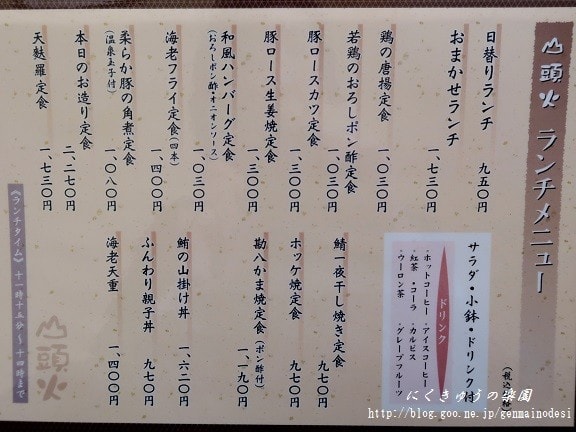 山頭火 ランチメニュー
日替りランチ 九五〇円
おまかせランチ 一、七三〇円
鶏の唐揚定食 一、〇三〇円
若鶏のおろしポン酢定食 一、〇三〇円
豚ロースカツ定食 一、三〇〇円
豚ロース生姜焼定食 一、三〇〇円
和風ハンバーグ定食 一、〇三〇円
(おろしポン酢・オニオンソース)
海老フライ定食(四本) 一、四〇〇円
柔らか豚の角煮定食 一、〇八〇円
(温泉玉子付)
本日のお造り定食 二、二七〇円
天麩羅定食 一、七三〇円
サラダ・小鉢・ドリンク付
ドリンク
・ホットコーヒー ・アイスコーヒー
・紅茶 ・コーラ ・カルピス
・ウーロン茶 ・グレープフルーツ
鯖一夜干し焼き定食 九七〇円
ホッケ焼定食 九七〇円
勘八かま焼定食(ポン酢付) 一、一九〇円
鮪の山掛け丼 一、六二〇円
ふんわり親子丼 九七〇円
海老天重 一、四〇〇円
《ランチタイム》十一時十五分～十四時まで
山頭火
にくきゅうの楽園
http://blog.goo.ne.jp/genmainodesi